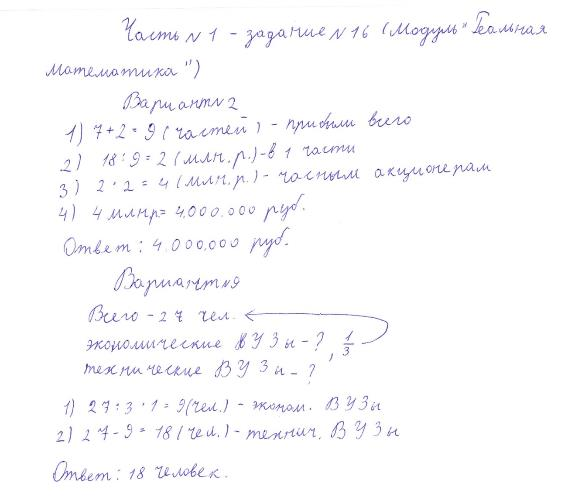 Часть №1 - задание №16 (Модуль "Реальная
математика")
Вариант №2
1) 7+2=9 (частей) - прибыли всего
2) 18:9=2 (млн.р.)-в 1 части
3) 2·2=4 (млн.р.) - часным акционерам
4) 4 млнр= 4.000.000 руб.
Ответ: 4.000.000 руб.
Вариант №9
Всего - 27 чел.
экономические ВУЗы - ?, 1/3
технические ВУЗы - ?
1) 27:3·1=9(чел.) - эконом. ВУЗы
2) 27-9=18(чел.) - технич. ВУЗы
Ответ: 18 человек.